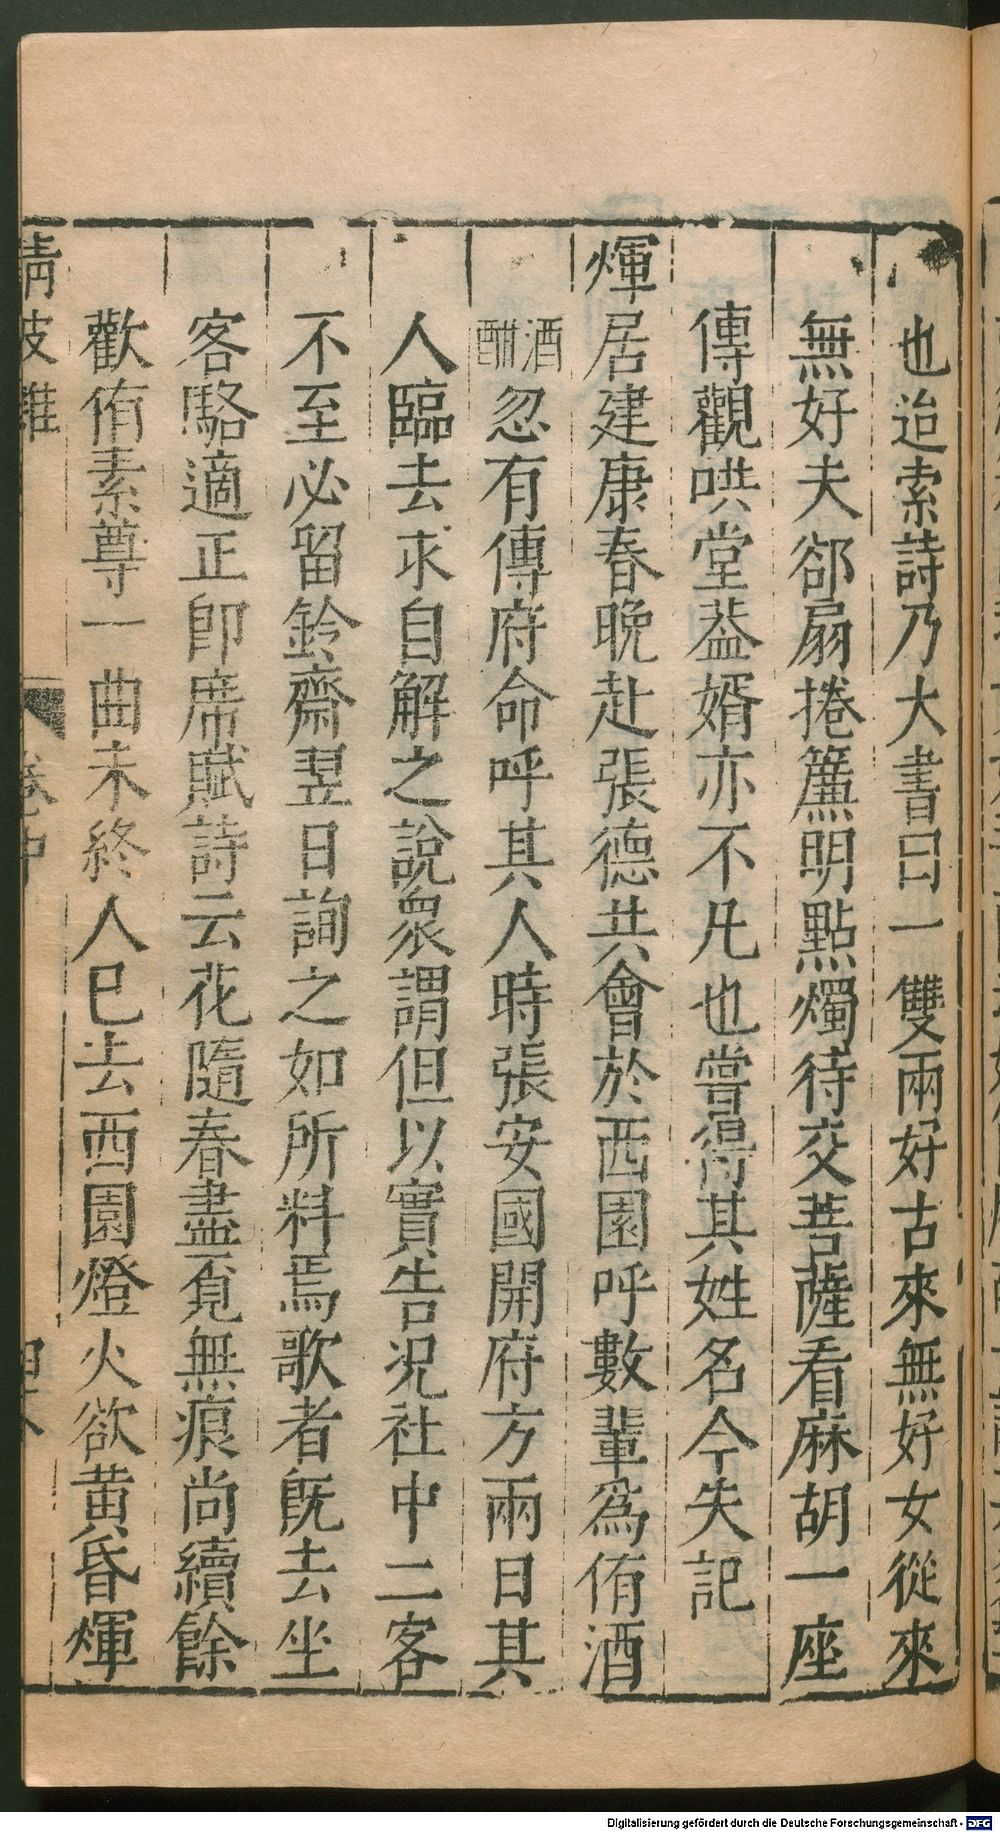 也迨索詩乃大書曰一雙兩好古來無好女從來
無好夫郤扇捲簾明點燭待交菩薩看麻胡一座
傳觀哄堂葢婿亦不凡也嘗得其姓名今失記
煇居建康春晚赴張德共會於西園呼數輩爲侑酒
酒酣忽有傳府命呼其人時張安國開府方兩日其
人臨去求自解之說衆謂但以實告況社中二客
不至必留鈴齋翌日詢之如所料焉歌者旣去坐
客駱適正卽席賦詩云花隨春盡覔無痕尚續餘
歡侑素尊一曲未終人已去西園燈火欲黃昏煇
清波雜
卷中
Digitalisierung gefördert durch die Deutsche Forschungsgemeinschaft - DFG